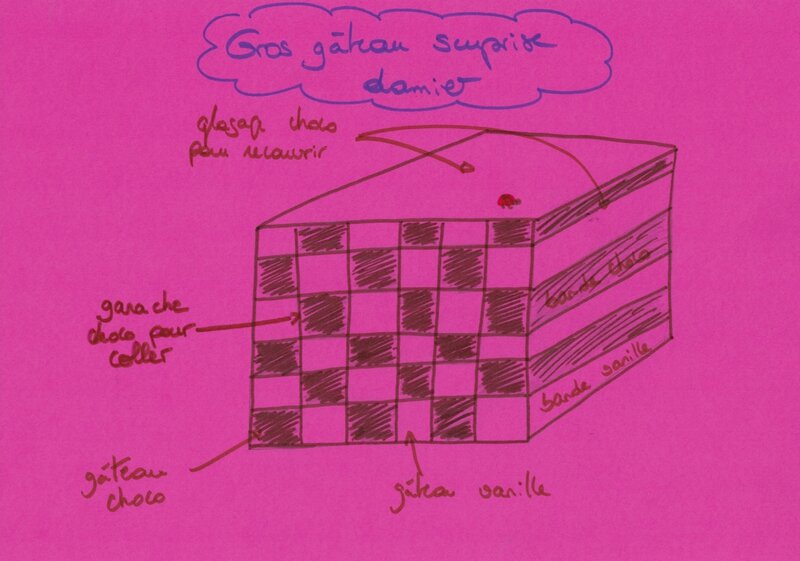 Gros gâteau surprise
damier
glaçage choco
pour recouvrir
ganache
choco pour
coller
bande choco
bande vanille
gâteau
choco
gâteau vanille